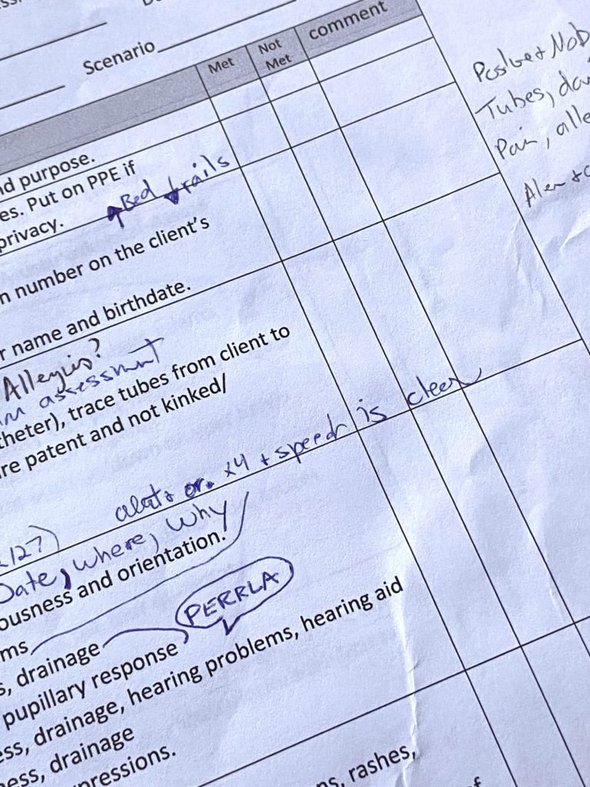 Scenario
Met
Not
Met
comment
nd purpose.
es. Put on PPE if
privacy.
Bed rails
n number on the client's
r name and birthdate.
Allegies?
assessment
theter), trace tubes from client to
re patent and not kinked/
x4 + speech is clear
127)
Date, where, Why
ousness and orientation.
ms
s, drainage
PERRLA
pupillary response
ess, drainage, hearing problems, hearing aid
ness, drainage
pressions.
ns, rashes,
of
Tubes,
Pain, alle